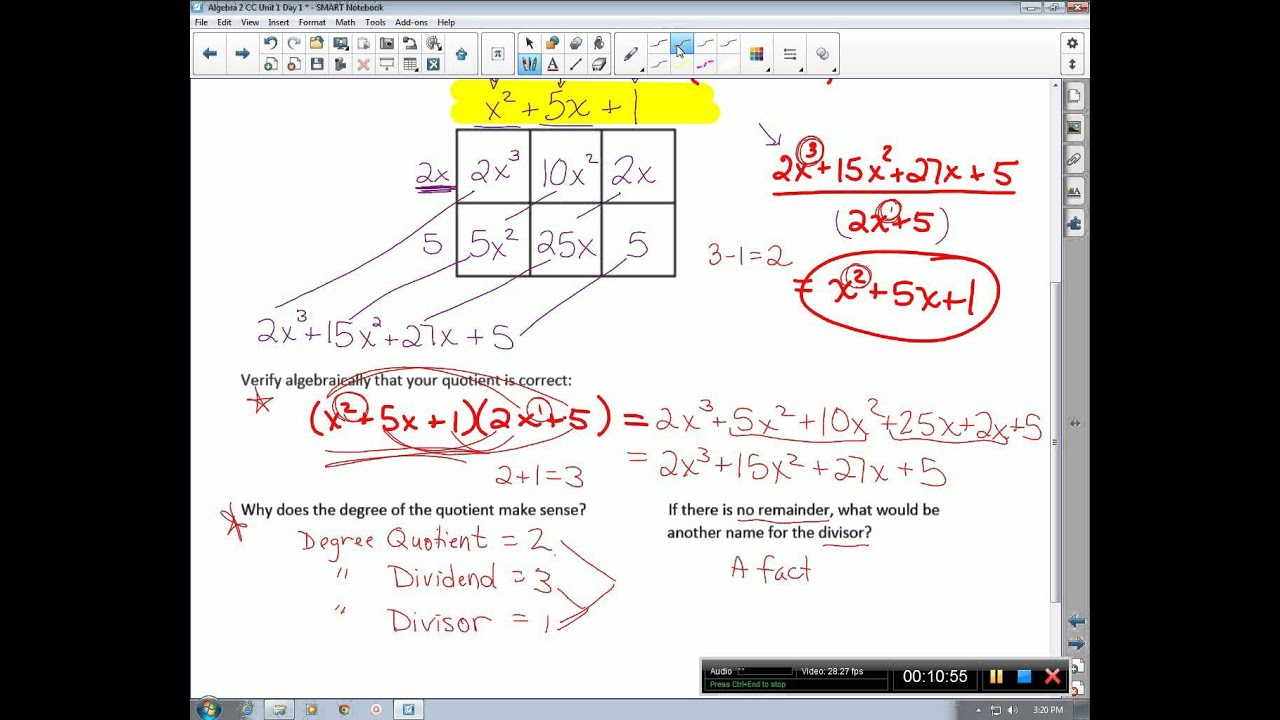 Algebra 2 CC Unit 1 Day 1 * - SMART Notebook
File Edit View Insert Format Math Tools Add-ons Help
x² + 5x + 1
2x 2x³ 10x² 2x
5 5x² 25x 5
2x³+15x²+27x+5
2x³+15x²+27x+5
(2x¹+5)
3-1=2
= x²+5x+1
Verify algebraically that your quotient is correct:
(x²+5x+1)(2x¹+5) = 2x³+5x²+10x²+25x+2x+5
= 2x³+15x²+27x+5
2+1=3
Why does the degree of the quotient make sense?
Degree Quotient = 2
" Dividend = 3
" Divisor = 1
If there is no remainder, what would be
another name for the divisor?
A fact
Audio Video: 28.27 fps
Press Ctrl+End to stop
00:10:55
3:20 PM